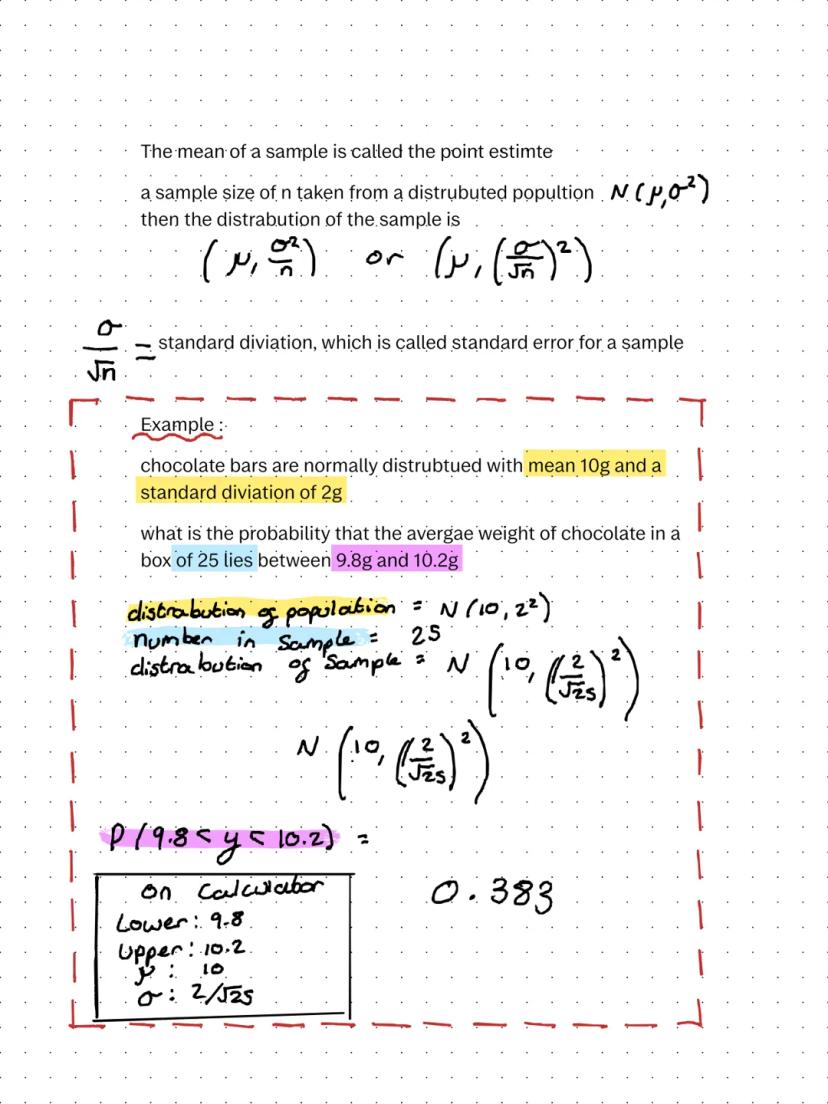 The mean of a sample is called the point estimte
a sample size of n taken from a distrubuted popultion N(μ,σ²)
then the distrabution of the sample is
(μ, σ²/n) or (μ, (σ/√n)²)
σ/√n = standard diviation, which is called standard error for a sample
Example :
chocolate bars are normally distrubtued with mean 10g and a
standard diviation of 2g
what is the probability that the avergae weight of chocolate in a
box of 25 lies between 9.8g and 10.2g
distrabution of population = N(10, 2²)
number in sample = 25
distrabution of sample = N (10, (2/√25)²)
N (10, (2/√25)²)
P(9.8 < y < 10.2) =
on calculator
Lower: 9.8
Upper: 10.2
μ: 10
σ: 2/√25
0.383